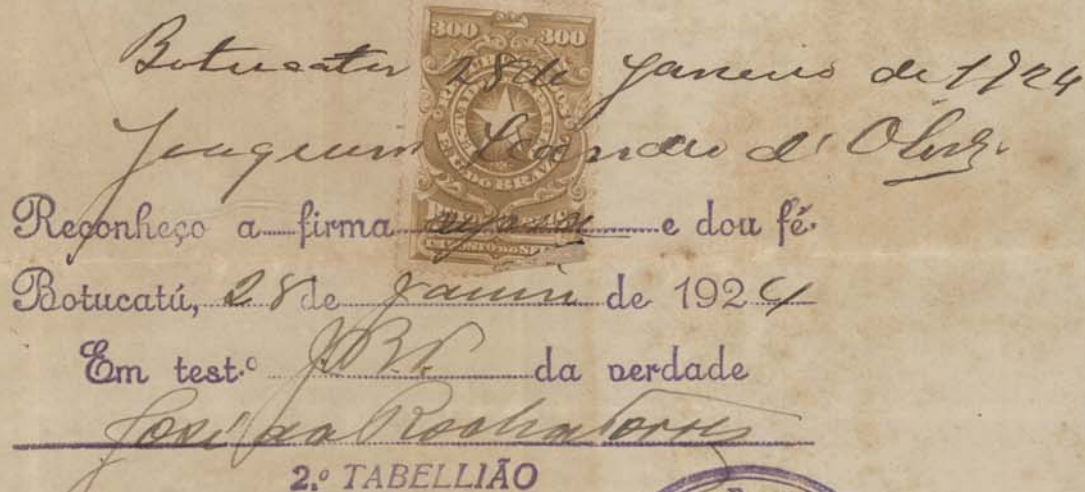 300 300
Botucatu 28 de Janeiro de 1924
Joaquim Leandro d'Olivª.
Reconheço a firma supra e dou fé.
Botucatú, 28 de Janeiro de 1924
Em test.º da verdade
José da Rocha Torres
2.º TABELLIÃO